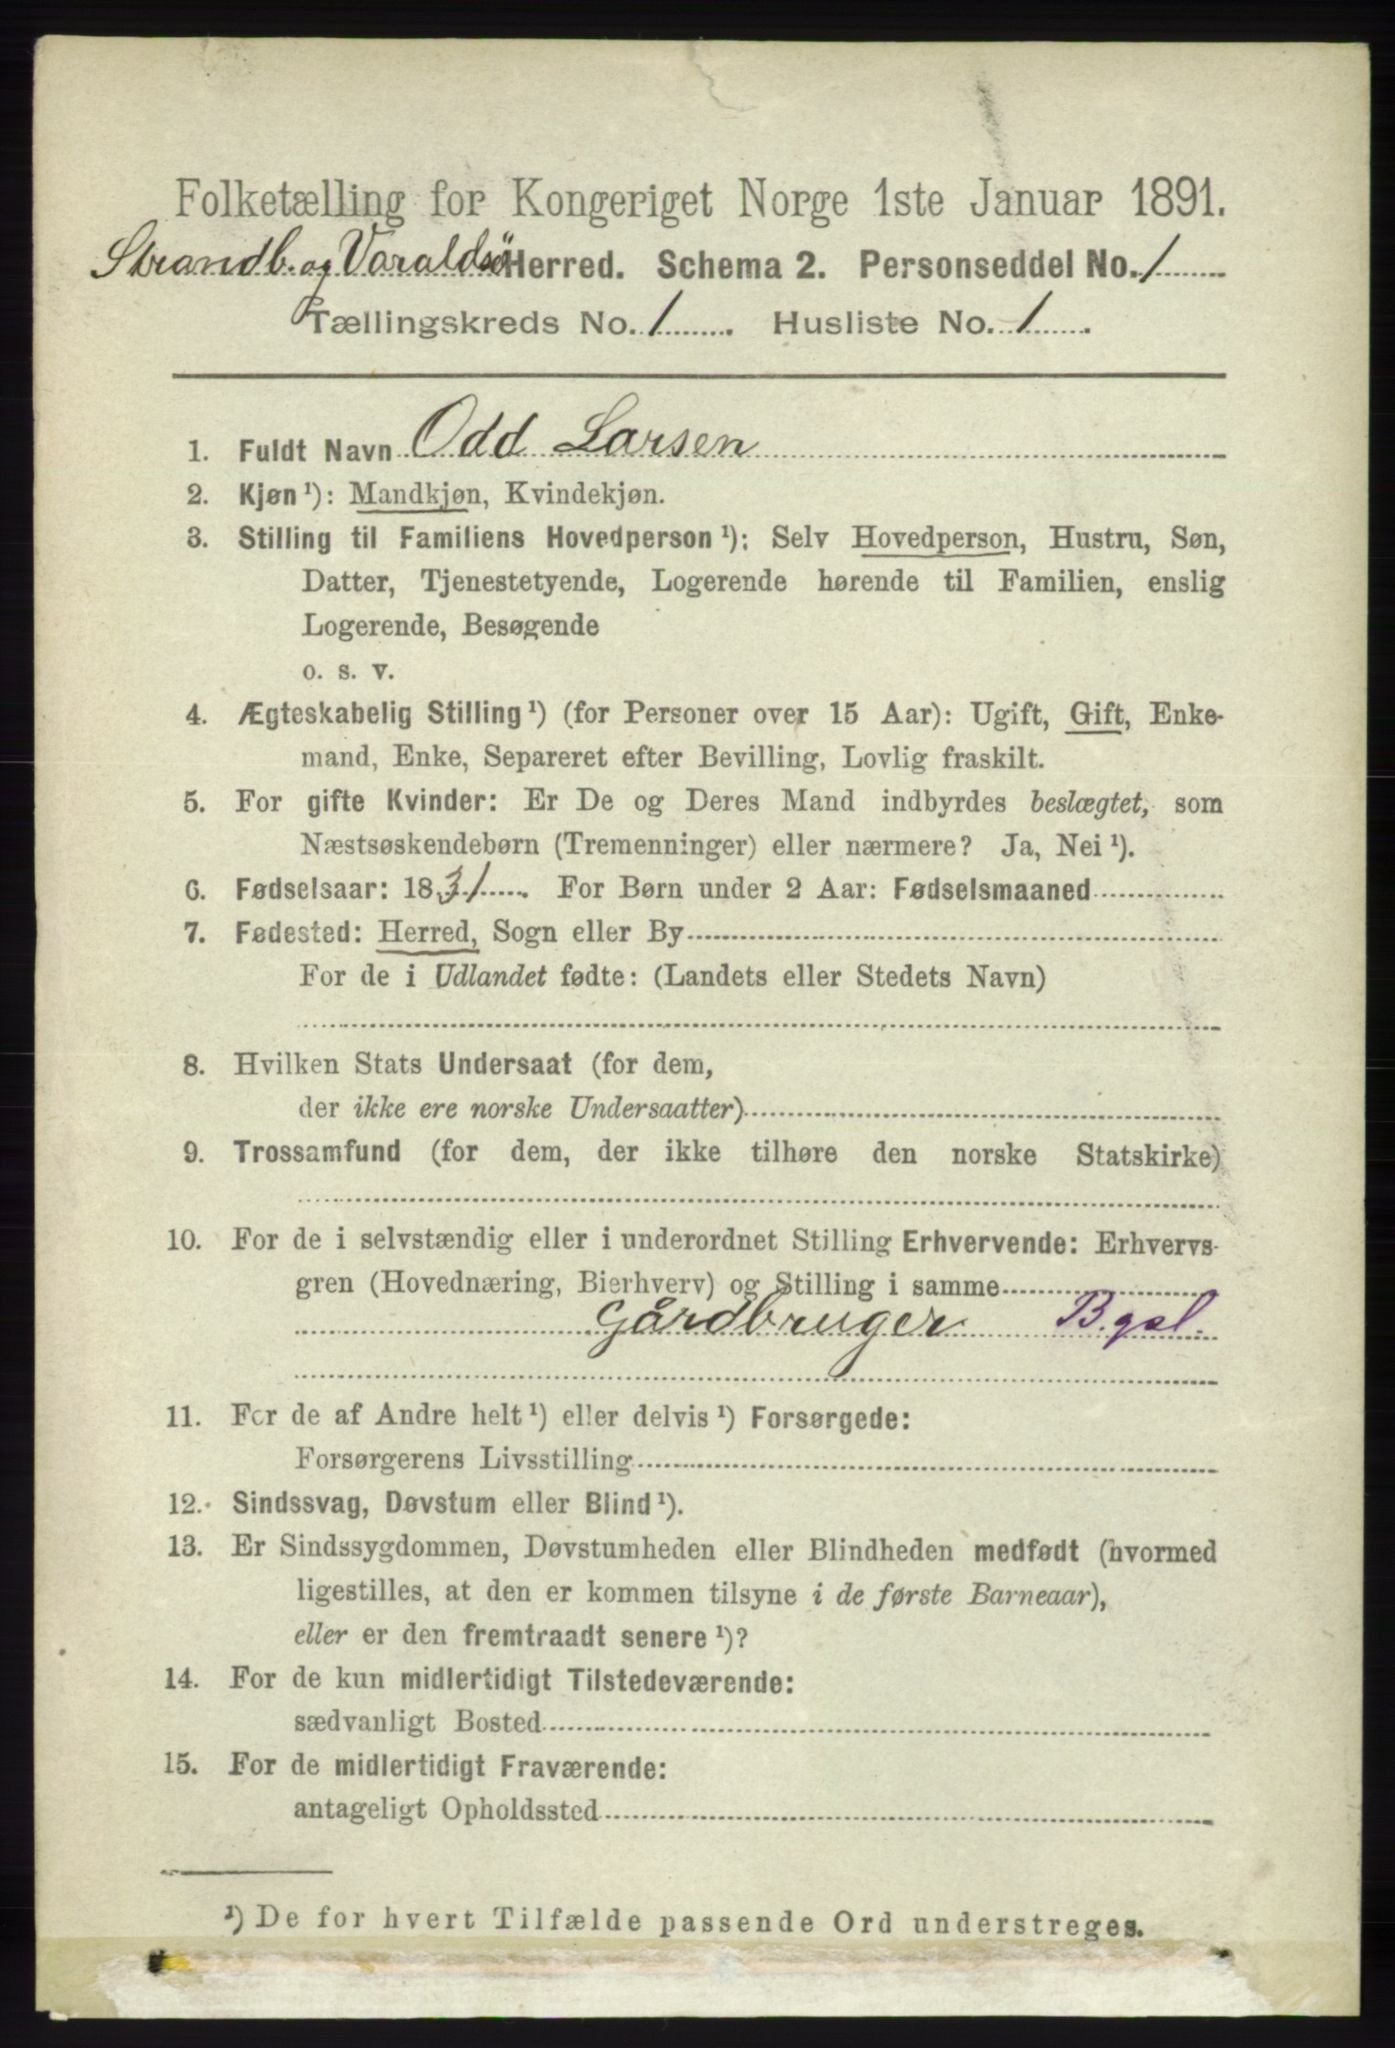 Folketælling for Kongeriget Norge 1ste Januar 1891.
Strandb. og Varaldsö Herred. Schema 2. Personseddel No. 1
Tællingskreds No. 1. Husliste No. 1.
1. Fuldt Navn Odd Larsen
2. Kjøn ¹): Mandkjøn, Kvindekjøn.
3. Stilling til Familiens Hovedperson ¹): Selv Hovedperson, Hustru, Søn,
Datter, Tjenestetyende, Logerende hørende til Familien, enslig
Logerende, Besøgende
o. s. v.
4. Ægteskabelig Stilling ¹) (for Personer over 15 Aar): Ugift, Gift, Enke-
mand, Enke, Separeret efter Bevilling, Lovlig fraskilt.
5. For gifte Kvinder: Er De og Deres Mand indbyrdes beslægtet, som
Næstsøskendebørn (Tremenninger) eller nærmere? Ja, Nei ¹).
6. Fødselsaar: 1831. For Børn under 2 Aar: Fødselsmaaned
7. Fødested: Herred, Sogn eller By
For de i Udlandet fødte: (Landets eller Stedets Navn)
8. Hvilken Stats Undersaat (for dem,
der ikke ere norske Undersaatter)
9. Trossamfund (for dem, der ikke tilhøre den norske Statskirke)
10. For de i selvstændig eller i underordnet Stilling Erhvervende: Erhvervs-
gren (Hovednæring, Bierhverv) og Stilling i samme
Gårdbruger B.gsl.
11. For de af Andre helt ¹) eller delvis ¹) Forsørgede:
Forsørgerens Livsstilling
12. Sindssvag, Døvstum eller Blind ¹).
13. Er Sindssygdommen, Døvstumheden eller Blindheden medfødt (hvormed
ligestilles, at den er kommen tilsyne i de første Barneaar),
eller er den fremtraadt senere ¹)?
14. For de kun midlertidigt Tilstedeværende:
sædvanligt Bosted
15. For de midlertidigt Fraværende:
antageligt Opholdssted
¹) De for hvert Tilfælde passende Ord understreges.